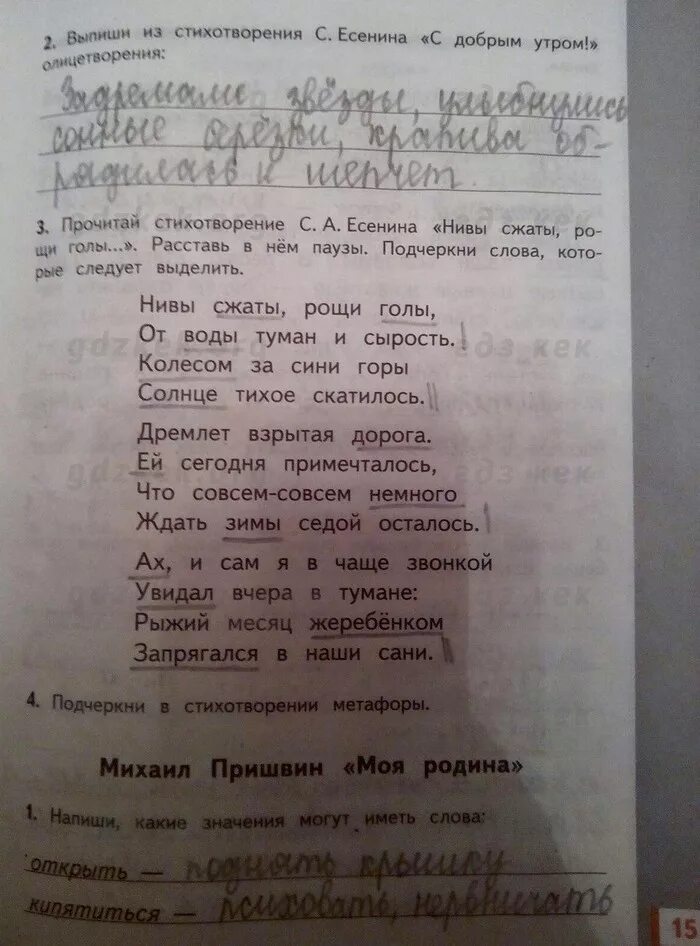 2. Выпиши из стихотворения С. Есенина «С добрым утром!»
олицетворения:
Задремали звёзды, улыбнулись
сонные берёзки, крапива об-
радилась и шепчет.
3. Прочитай стихотворение С. А. Есенина «Нивы сжаты, ро-
щи голы...». Расставь в нём паузы. Подчеркни слова, кото-
рые следует выделить.
Нивы сжаты, рощи голы,
От воды туман и сырость.
Колесом за сини горы
Солнце тихое скатилось.
Дремлет взрытая дорога.
Ей сегодня примечталось,
Что совсем-совсем немного
Ждать зимы седой осталось.
Ах, и сам я в чаще звонкой
Увидал вчера в тумане:
Рыжий месяц жеребёнком
Запрягался в наши сани.
4. Подчеркни в стихотворении метафоры.
Михаил Пришвин «Моя родина»
1. Напиши, какие значения могут иметь слова:
открыть — поднять крышку
кипятиться — психовать, нервничать
15